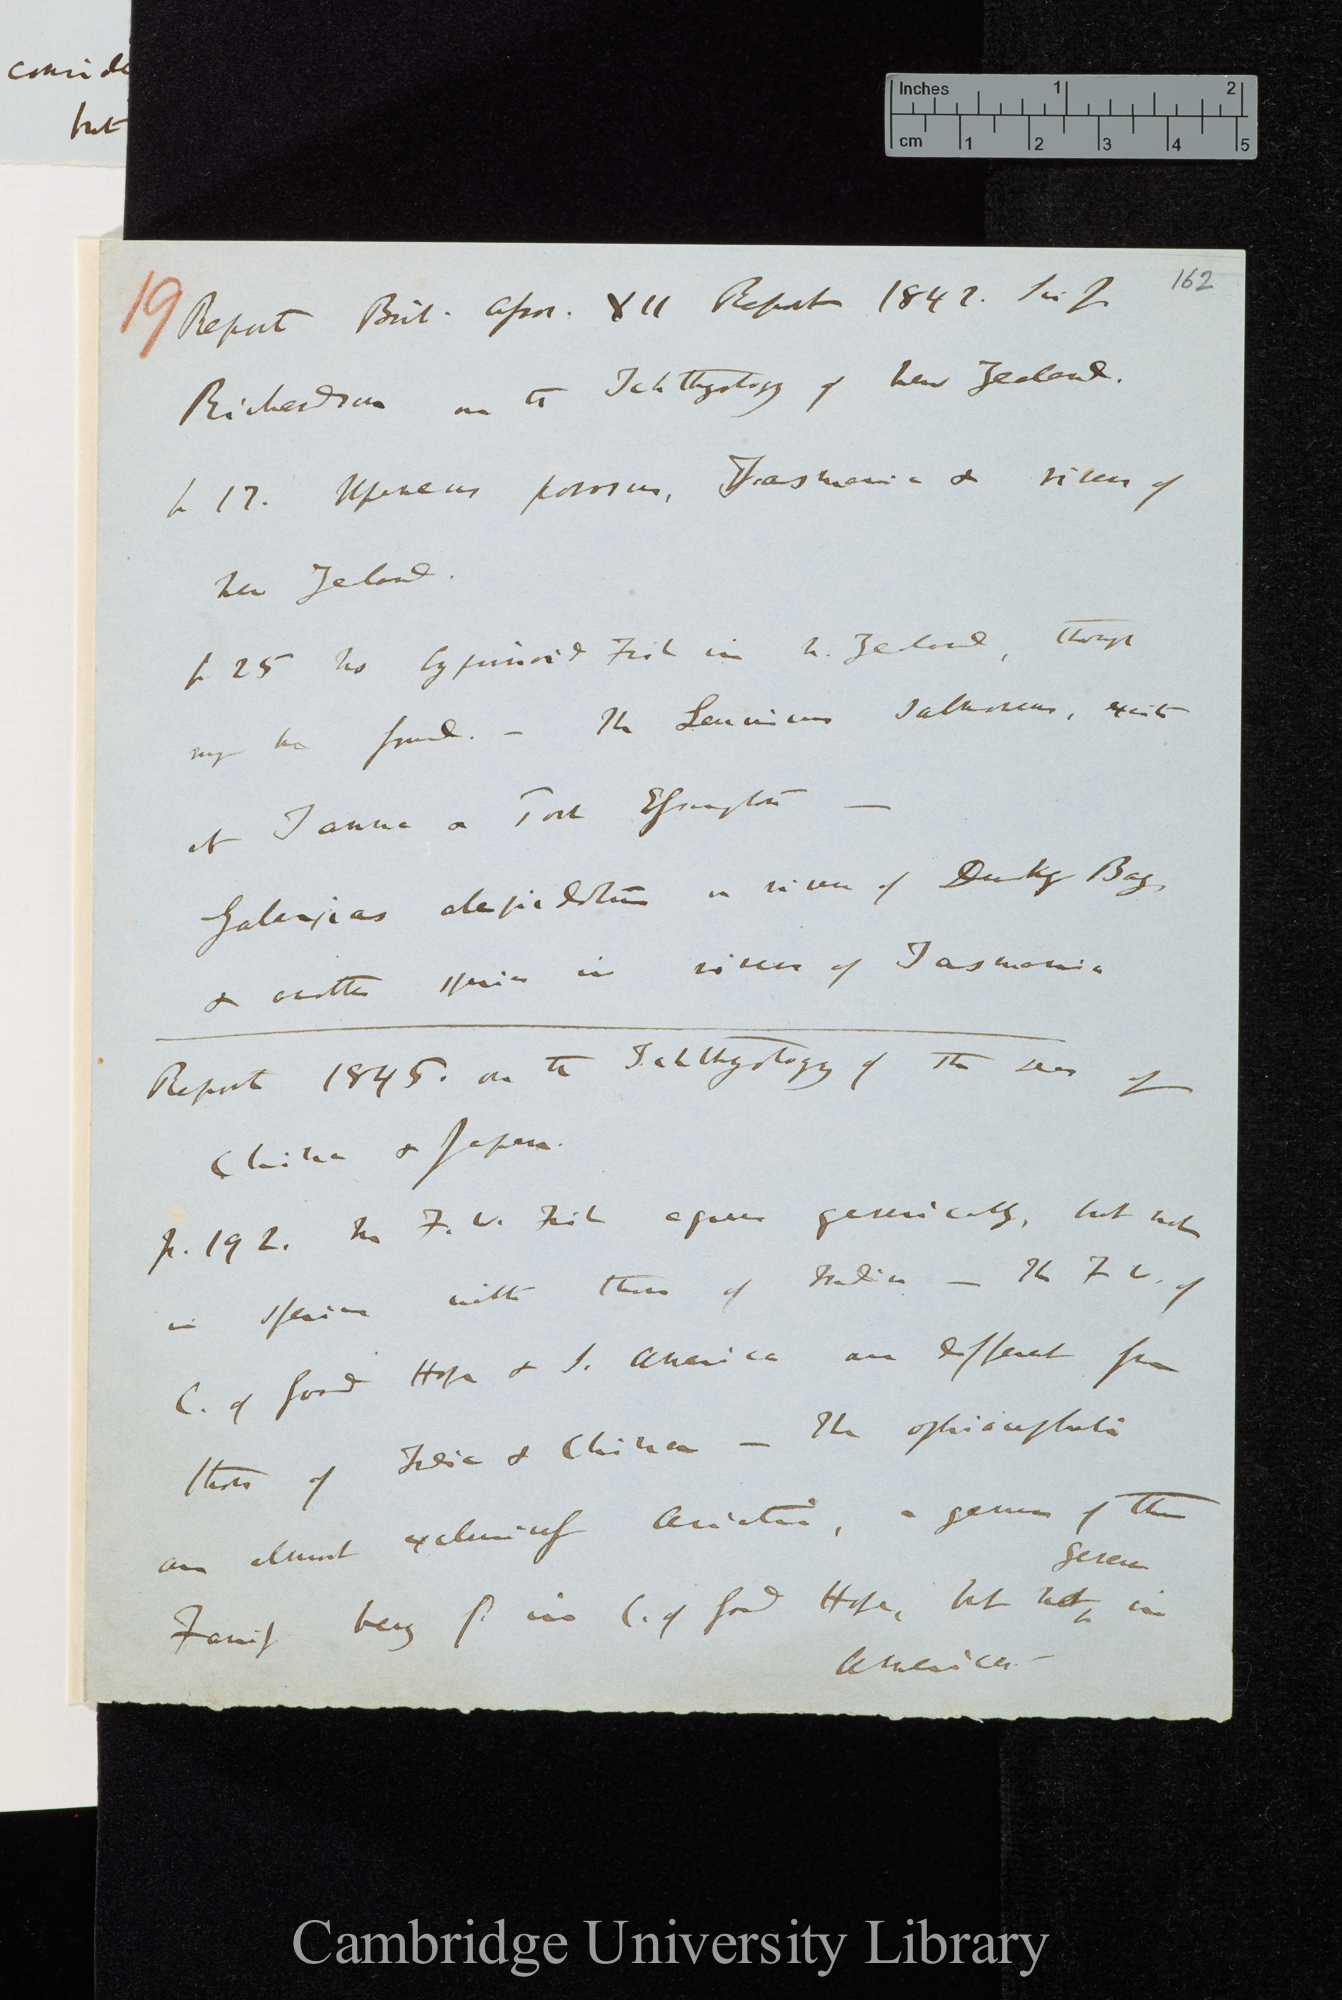 conside
but
Inches 1 2
cm 1 2 3 4 5
162
19
Report Brit. Assoc. XII Report 1842. Sir J
Richardson on the Ichthyology of New Zealand.
p 17. Upeneus porosus, Tasmania & rivers of
New Zeland.
p 25 no Cyprinoid Fish in N. Zeeland, though
may be found. — The Leuciscus salmoneus, exists
at Tanna & Port Essington —
Galaxias alepidotus in rivers of Dusky Bay,
& another species in rivers of Tasmania
Report 1845. on the Ichthyology of the seas of
China & Japan.
p. 192. The F. W. Fish agrees generically, but not
in species with those of India — The F W. of
C. of Good Hope & S. America are different from
those of India & China — The ophiocephali
are almost exclusively Asiatic, a genus of this
Family being f. in C. of Good Hope, but not in
America —